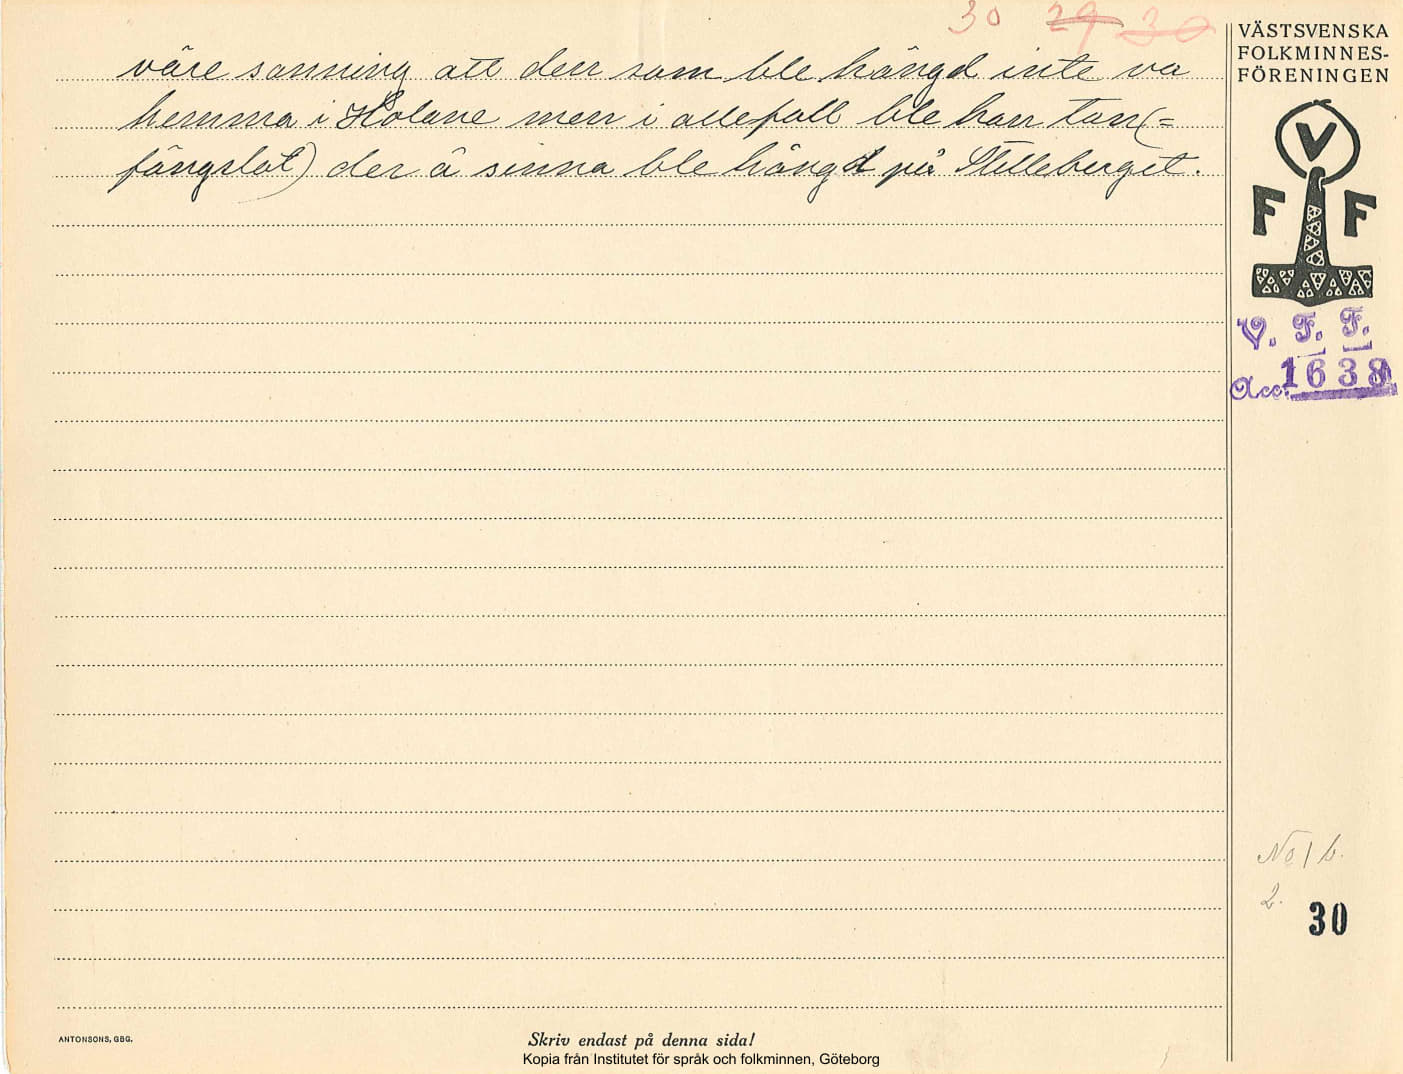 30 29 30
VÄSTSVENSKA
FOLKMINNES-
FÖRENINGEN
våre sanning att den som ble hängd inte va
hemma i Holane men i allefall ble han tan (=
fängslat) der å sinna ble hängd på Stilleberget.
V
F F
V. F. F.
Acc. 1638
No 1 b.
2.
30
ANTONSONS, GBG.
Skriv endast på denna sida!
Kopia från Institutet för språk och folkminnen, Göteborg